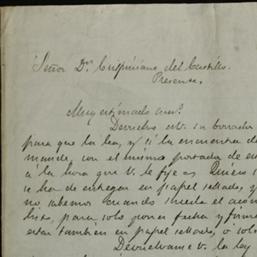 Señor Dn. Crispiniano del Castillo.
Presente.
Muy estimado am.º
Devuelvo á V. su borrador
para que lo lea, y si lo encuentra de
mande, con el mismo portador de es
á la hora que V. le fije
se ha de entregar en papel sellado, y
no sabemos cuando
para solo poner fecha y firma
estar tambien en papel sellado, ó solo
Devuélvame V. la ley